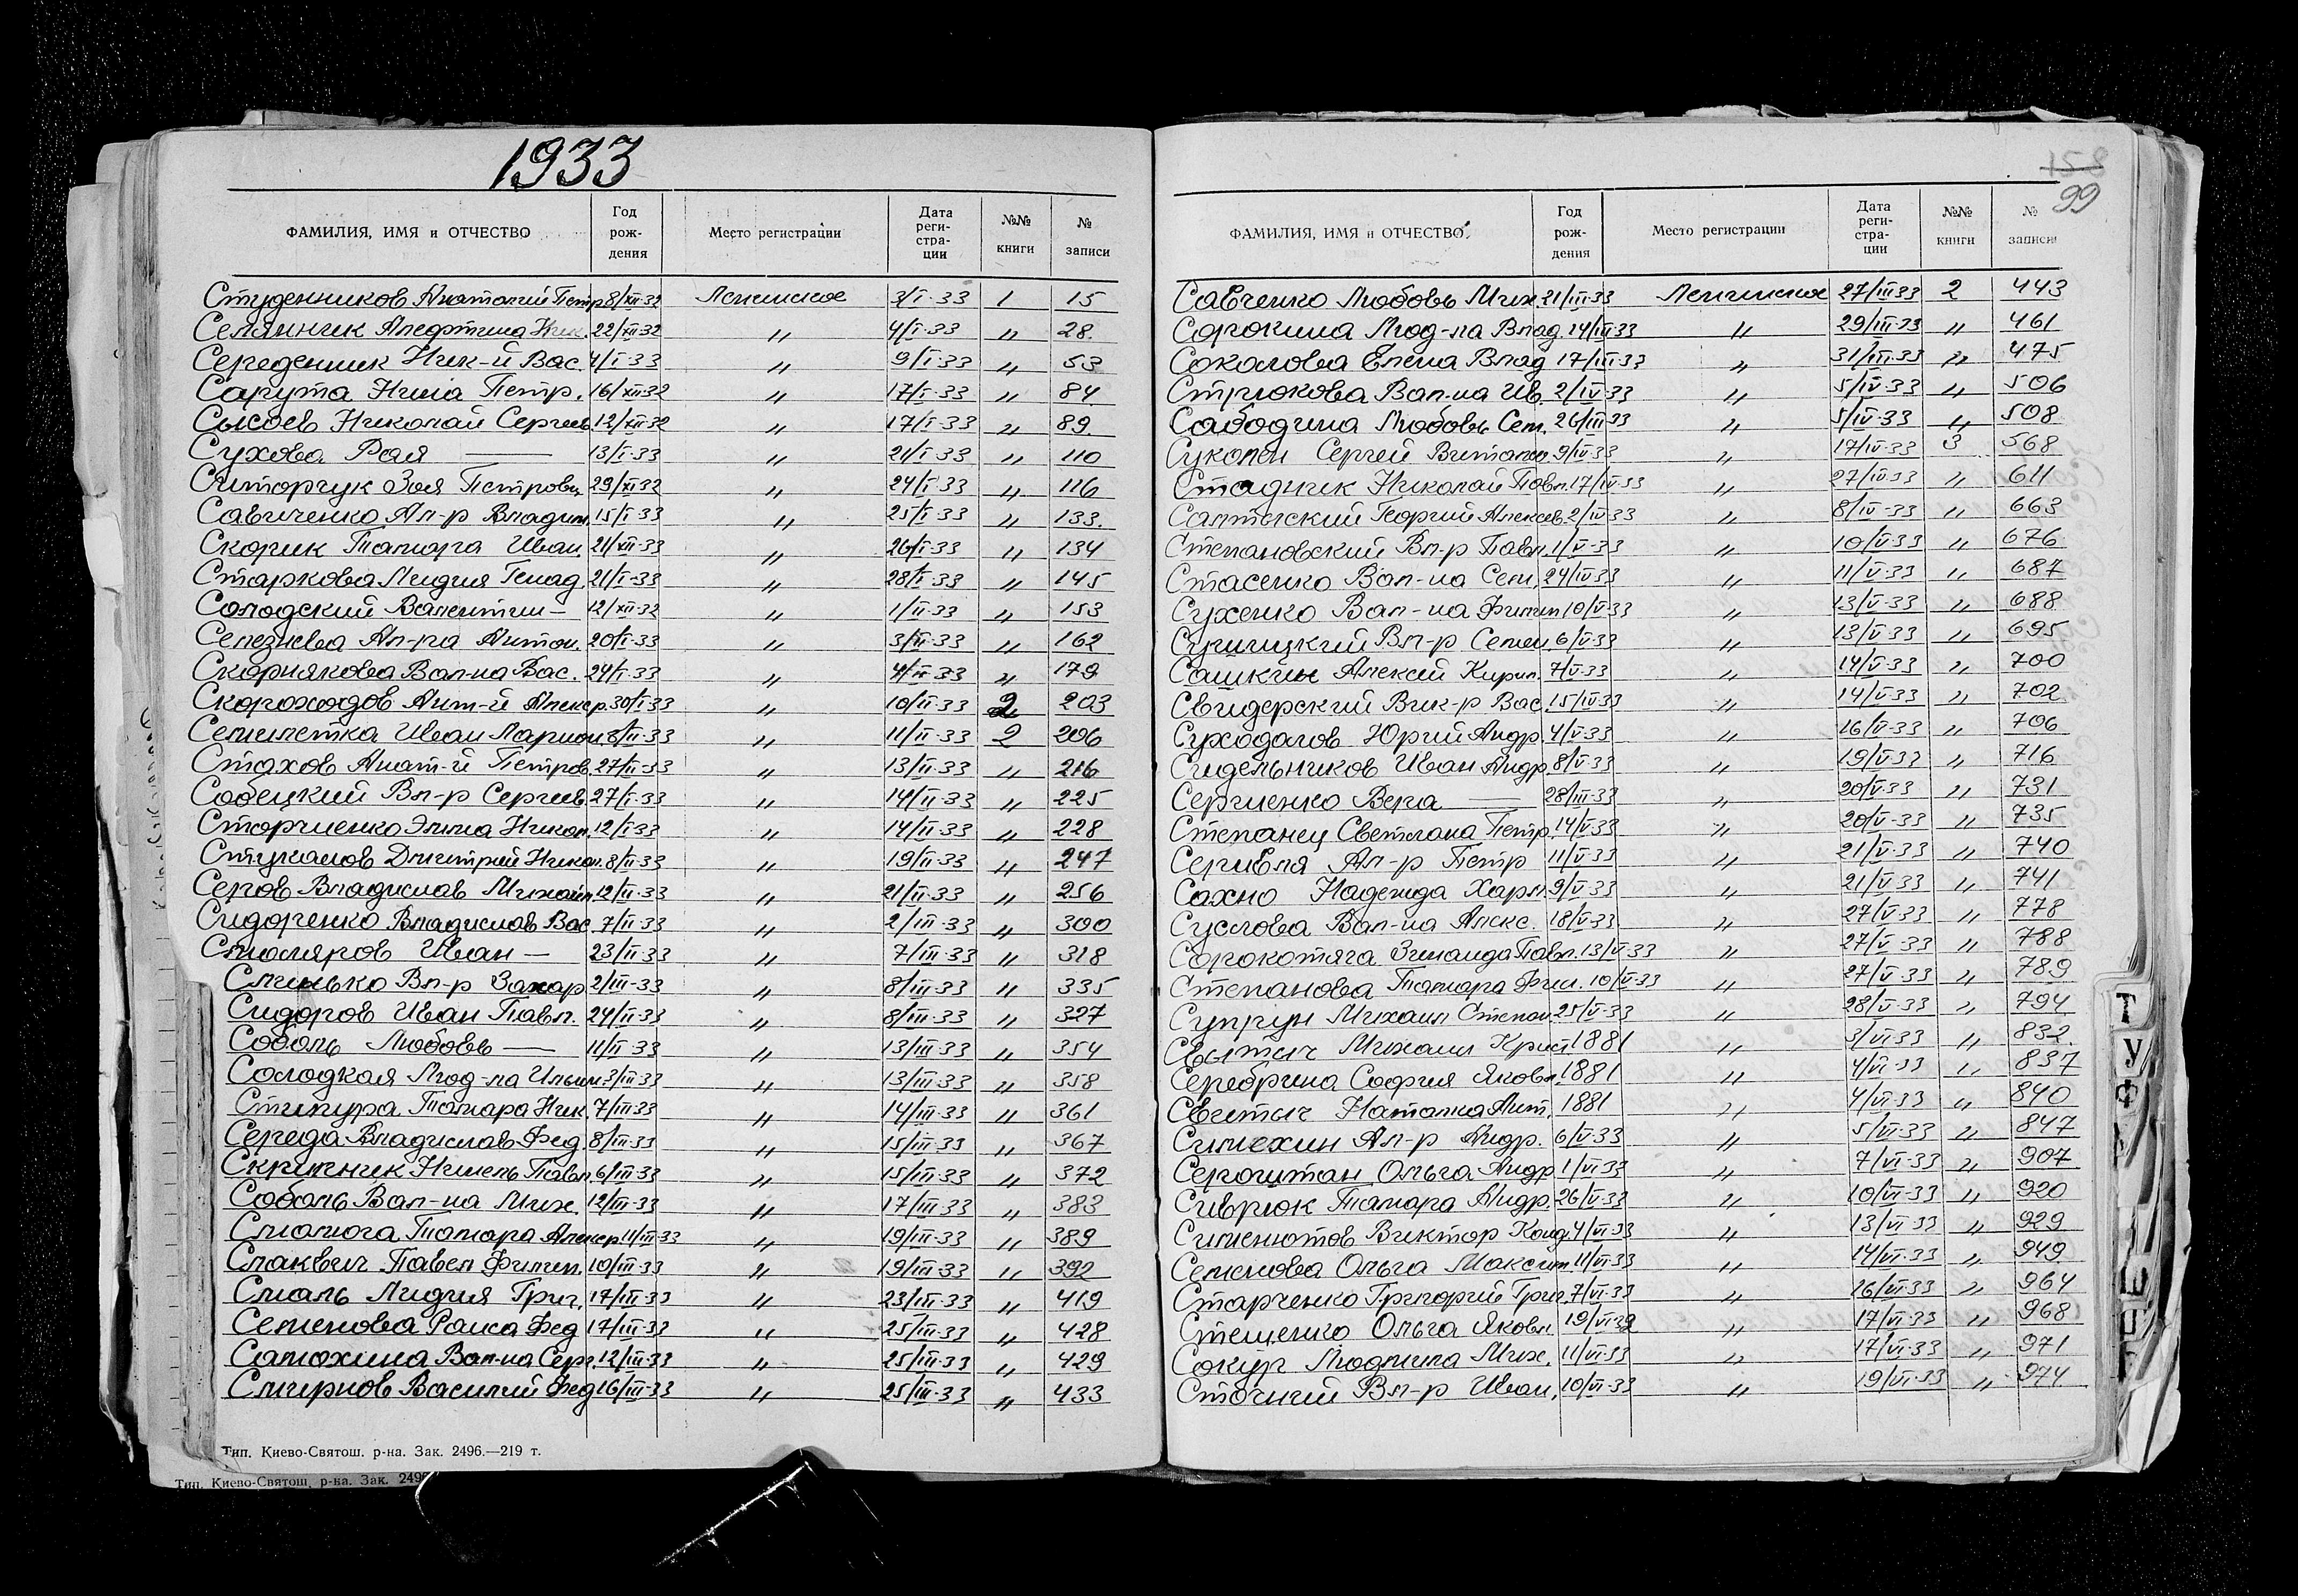 1933
158
99
ФАМИЛИЯ, ИМЯ и ОТЧЕСТВО Год рождения Место регистрации Дата регистрации №№ книги № записи
Студенников Анатолий Петр 8/XII-32 Ленинское 3/I-33 1 15
Селянник Алефтина Ник. 22/XII-32 " 4/I-33 " 28.
Середенник Ник-й Вас. 4/I-33 " 9/I-33 " 53
Сарута Нина Петр. 16/XII-32 " 17/I-33 " 84
Сысоев Николай Сергеев. 12/XII-32 " 17/I-33 " 89.
Сухова Рая — 13/I-33 " 21/I-33 " 110
Зоя Петровн 29/XI-32 " 24/I-33 " 116
Савиченко Ал-р Владим. 15/I-33 " 25/I-33 " 133.
Скорик Тамара Иван. 21/XII-33 " 26/I-33 " 134
Старкова Лидия Генад. 21/I-33 " 28/I-33 " 145
Солодский Валентин — 12/XII-32 " 1/II-33 " 153
Селезнева Ал-ра Антон. 20/I-33 " 3/II-33 " 162
Скорнякова Вал-на Вас. 24/I-33 " 4/II-33 " 179
Скороходов Анат-й Алекср. 30/I-33 " 10/II-33 2 203
Семилетка Иван Ларион. 8/II-33 " 11/II-33 2 206
Стахов Анат-й Петров. 27/II-33 " 13/II-33 " 216
Собецкий Вл-р Сергеев. 27/I-33 " 14/II-33 " 225
Сторчиенко Элла Никол. 12/I-33 " 14/II-33 " 228
Стукалов Дмитрий Никол. 8/II-33 " 19/II-33 " 247
Серов Владислав Михайл. 12/II-33 " 21/II-33 " 256
Сидоренко Владислав Вас. 7/II-33 " 2/III-33 " 300
Столяров Иван — 23/II-33 " 7/III-33 " 318
Слинько Вл-р Захар 2/III-33 " 8/III-33 " 335
Сидоров Иван Павл. 24/II-33 " 8/III-33 " 327
Соболь Любовь — 11/II-33 " 13/III-33 " 354
Солодкая Люд-ла Ильин. 3/III-33 " 13/III-33 " 358
Стипура Тамара Ник. 7/III-33 " 14/III-33 " 361
Середа Владислав Фед. 8/III-33 " 15/III-33 " 367
Скрипник Нинель Павл. 6/III-33 " 15/III-33 " 372
Соболь Вал-на Мих. 12/III-33 " 17/III-33 " 383
Тамара Алекср. 11/III-33 " 19/III-33 " 389
Спаквич Павел Филип. 10/III-33 " 19/III-33 " 392
Смаль Лидия Григ. 17/III-33 " 23/III-33 " 419
Семенова Раиса Фед 17/III-33 " 25/III-33 " 428
Самохина Вал-на Серг. 12/III-33 " 25/III-33 " 429
Смирнов Василий Фед 16/III-33 " 25/III-33 " 433
Тип. Киево-Святош. р-на. Зак. 2496.—219 т.
Тип. Киево-Святош. р-на. Зак. 2496
ФАМИЛИЯ, ИМЯ и ОТЧЕСТВО Год рождения Место регистрации Дата регистрации №№ книги № записи
Савченко Любовь Мих. 21/III-33 Ленинское 27/III-33 2 443
Сорокина Люд-ла Влад. 14/III-33 " 29/III-33 " 461
Соколова Елена Влад 17/III-33 " 31/III-33 " 475
Стрюкова Вал-на Ив. 2/IV-33 " 5/IV-33 " 506
Сабодина Любовь Сем. 26/III-33 " 5/IV-33 " 508
Сукопен Сергей Витал 9/IV-33 " 17/IV-33 3 568
Стадник Николай Павл. 17/IV-33 " 27/IV-33 " 611
Салтыский Георгий Алексеев. 2/IV-33 " 8/IV-33 " 663
Степановский Вл-р Павл. 1/V-33 " 10/V-33 " 676
Стасенко Вал-на Сем. 24/IV-33 " 11/V-33 " 687
Сухенко Вал-на Филип 10/V-33 " 13/V-33 " 688
Вл-р Семен. 6/V-33 " 13/V-33 " 695
Сашкин Алексей Кирил. 7/V-33 " 14/V-33 " 700
Свидерский Вик-р Вас. 15/IV-33 " 14/V-33 " 702
Суходолов Юрий Андр. 4/V-33 " 16/V-33 " 706
Сидельников Иван Андр. 8/V-33 " 19/V-33 " 716
Сергиенко Вера — 28/III-33 " 20/V-33 " 731
Степанец Светлана Петр. 14/V-33 " 20/V-33 " 735
Сегивля Ал-р Петр 11/V-33 " 21/V-33 " 740
Сахно Надежда Харл. 9/V-33 " 21/V-33 " 741
Суслова Вал-на Алекс. 18/V-33 " 27/V-33 " 778
Сорокотяга Зинаида Павл. 13/V-33 " 27/V-33 " 788
Степанова Тамара Фил. 10/V-33 " 27/V-33 " 789
Супрун Михаил Степан. 25/V-33 " 28/V-33 " 794
Свытыч Михаил Крист 1881 " 3/VI-33 " 832.
Серебрина София Яковл. 1881 " 4/VI-33 " 837
Свитыч Наталка Ант. 1881 " 4/VI-33 " 840
Симехин Ал-р Андр. 6/V-33 " 5/VI-33 " 847
Сероштан Ольга Андр 1/VI-33 " 7/VI-33 " 907
Сиврюк Тамара Андр. 26/V-33 " 10/VI-33 " 920
Симентов Виктор Конд. 4/VI-33 " 13/VI-33 " 929
Семенова Ольга Максим. 11/VI-33 " 14/VI-33 " 949
Старченко Григорий Григ. 7/VI-33 " 16/VI-33 " 964
Стещенко Ольга Яковл 19/VI-32 " 17/VI-33 " 968
Сокур Людмила Мих. 11/VI-33 " 17/VI-33 " 971
Сточний Вл-р Иван. 10/VI-33 " 19/VI-33 " 974
Т
У
Ф
Ш